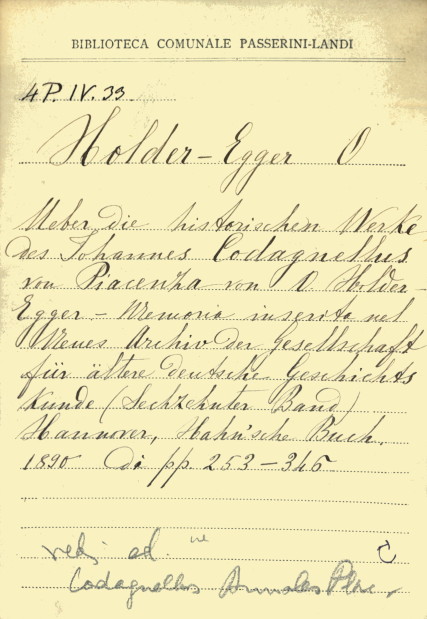 BIBLIOTECA COMUNALE PASSERINI-LANDI
4P. IV. 33
Holder-Egger O
Ueber die historischen Werke
des Johannes Codagnellus
von Piacenza von O. Holder-
Egger - Memoria inserita nel
Neues Archiv der Gesellschaft
für ältere deutsche Geschichts
Kunde (Sechzehnter Band)
Hannover, Hahn'sche Buch.
1890 Di pp. 253-346
vedi ad.
C
Codagnellus Annales Plac.